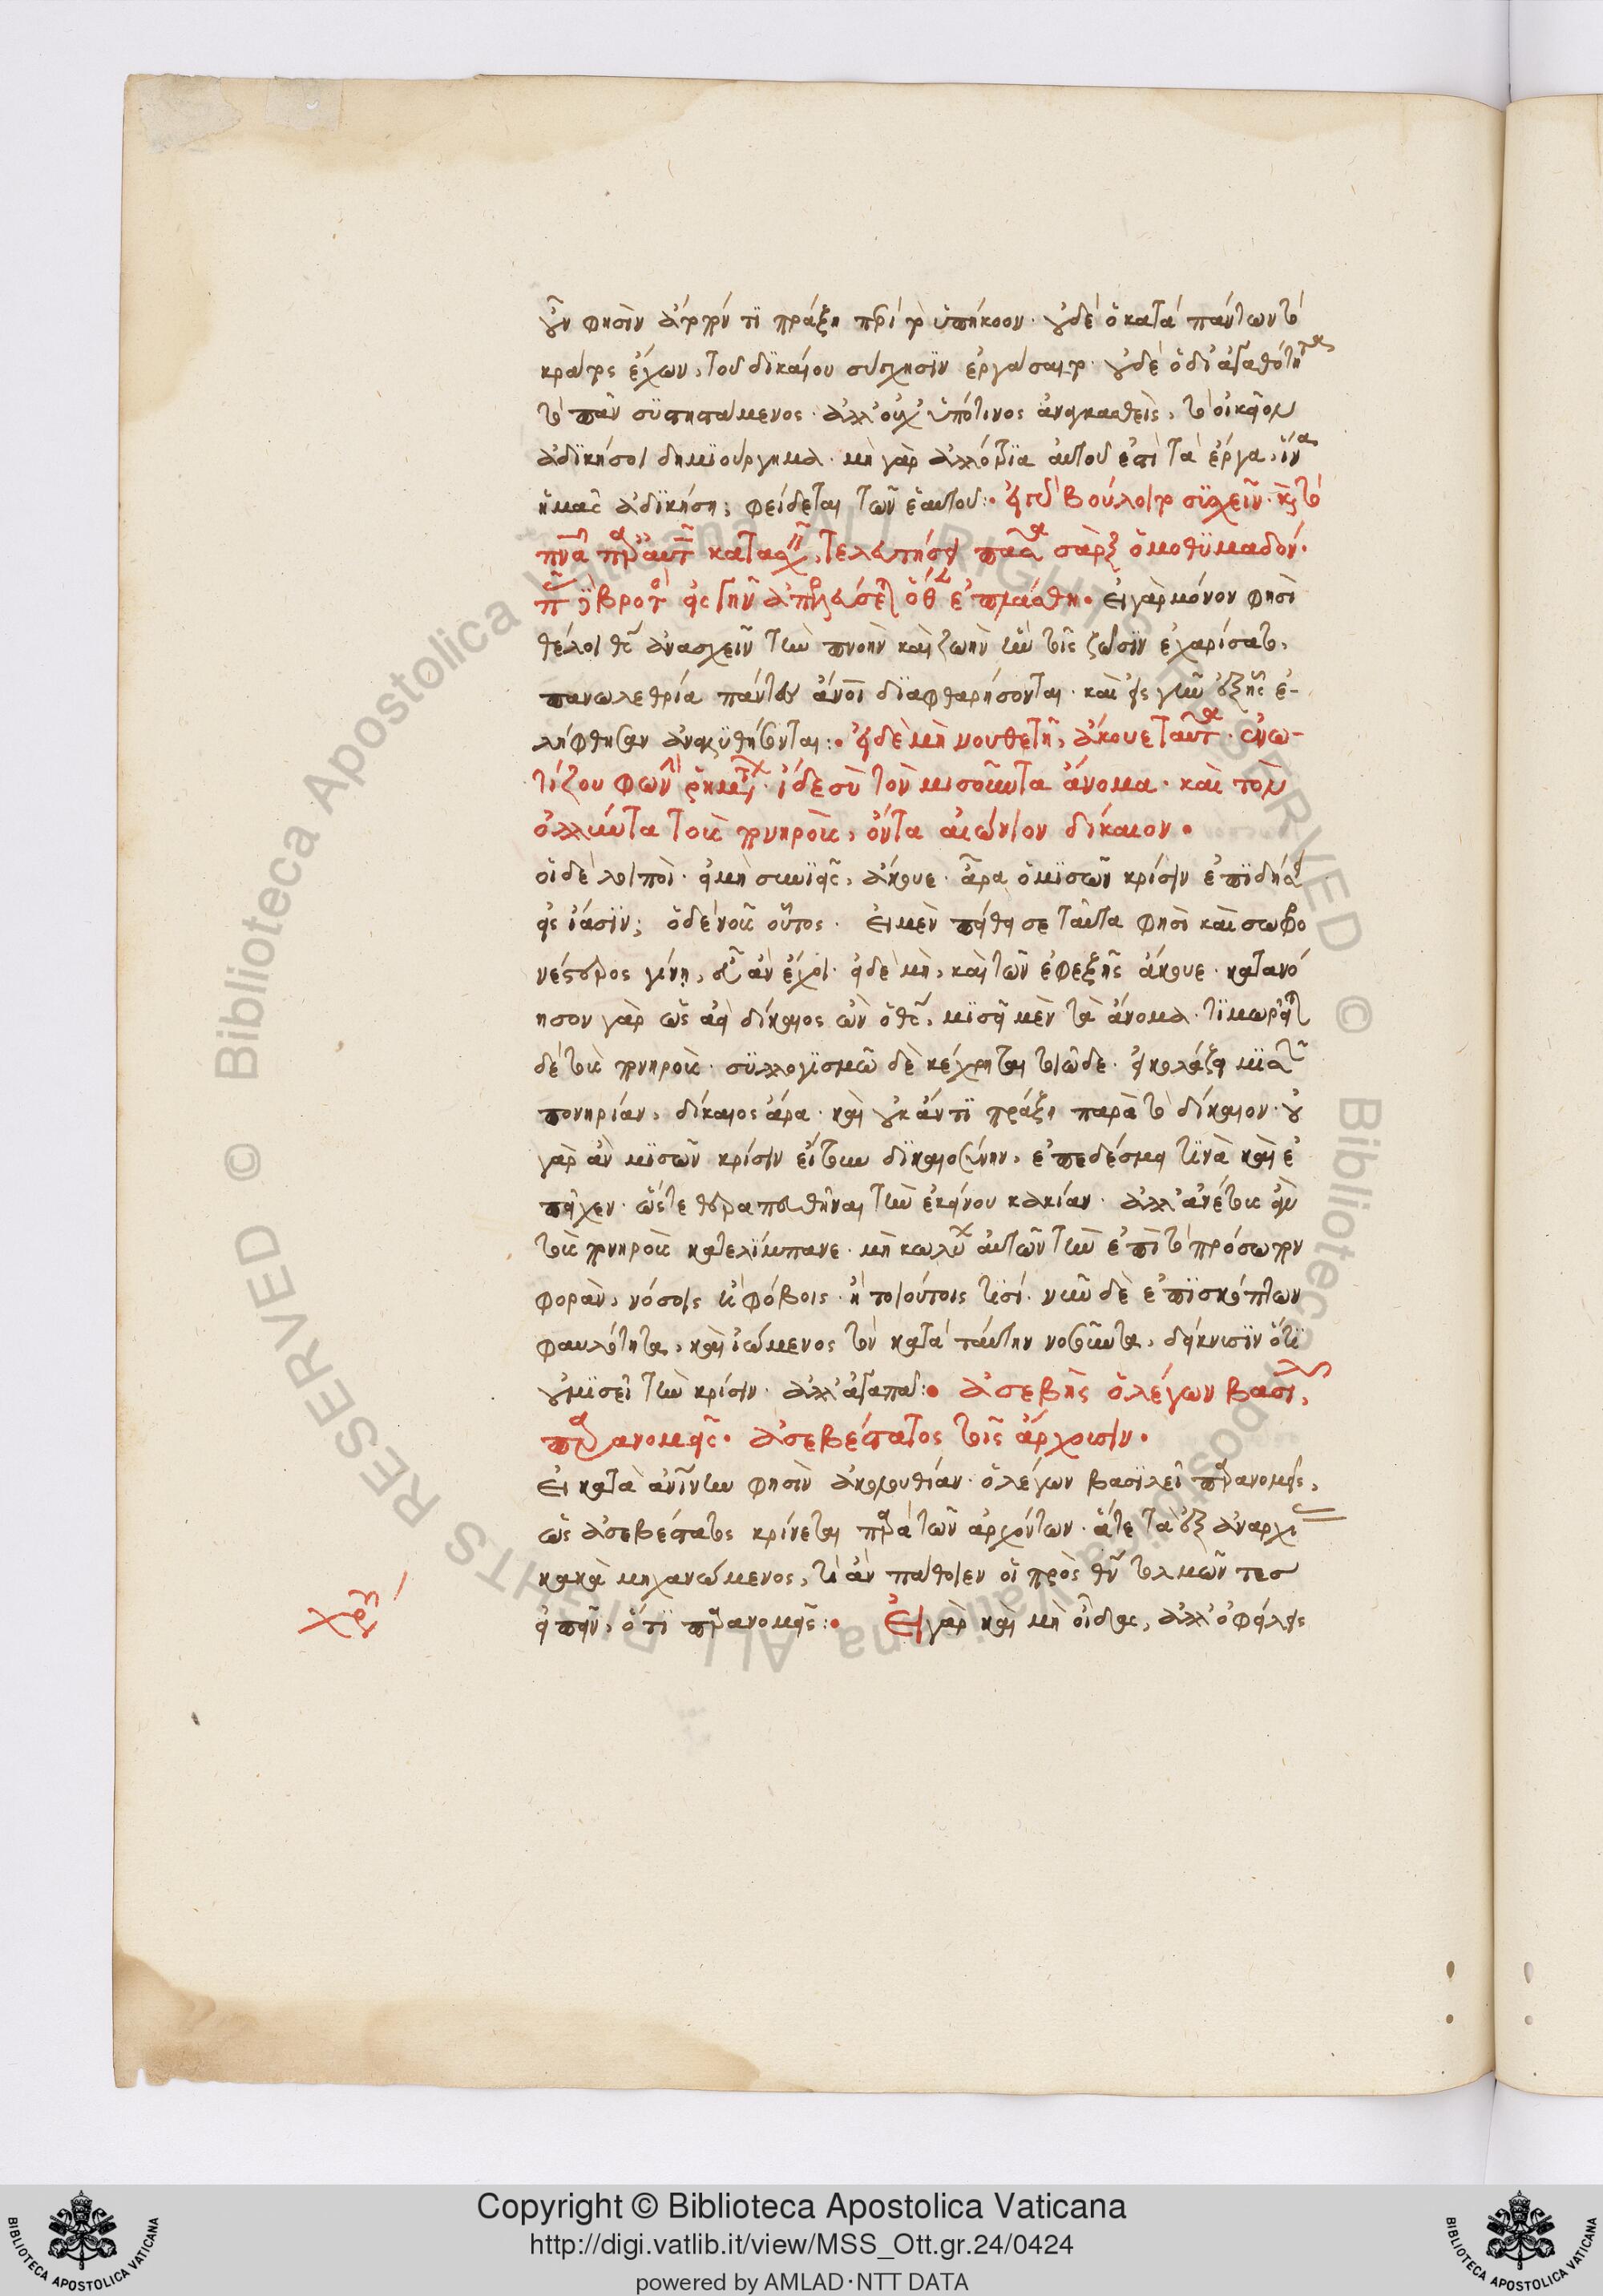 οὖν φησὶν ἄτοπόν τι πράξει περὶ τὸ ὑπήκοον. οὐδὲ ὁ κατὰ πάντων τὸ
κράτος ἔχων, τοῦ δικαίου σύγχησιν ἐργάσαιτο. οὐδὲ ὁ δι' ἀγαθότητα
τὸ πᾶν συστησάμενος. ἀλλ' οὐχ' ὑπό τινος ἀναγκασθεὶς, τὸ οἰκεῖον
ἀδικήσοι δημιούργημα. μὴ γὰρ ἀλλότρια αὐτοῦ ἐστὶ τὰ ἔργα, ἵνα
ἡμᾶς ἀδικήση; φείδεται τῶν ἑαυτοῦ: εἰ γὰρ βούλοιτο συνέχειν. καὶ τὸ
πνᾶ παρ' αὐτῶ κατασχεῖν, τελευτήσει πᾶσα σὰρξ ὁμοθυμαδόν.
πᾶς βροτὸς εἰς γῆν ἀπελεύσεται ὅθεν ἐπλάσθη. εἰ γὰρ μόνον φησὶ
θέλοι θς ἀνασχεῖν τὴν πνοὴν καὶ ζωὴν ἣν τοῖς ζῶσιν ἐχαρίσατο,
πανωλεθρία πάντες ἄνοι διαφθαρήσονται. καὶ εἰς γῆν ἐξ ἧς ἐ-
λήφθησαν ἀναλυθήσονται: εἰ δὲ μὴ νουθετῆ, ἄκουε ταῦτα. ἐνω-
τίζου φωνὴν ῥημάτων. ἴδε σὺ τὸν μισοῦντα ἄνομα. καὶ τὸν
ὀλλύντα τοὺς πονηροὺς, ὄντα αἰώνιον δίκαιον.
οἱ δὲ λοιποὶ. εἰ μὴ συνίεις, ἄκουε. ἆρα ὁ μισῶν κρίσιν ἐπιδήσει
εἰς ἴασιν; ὁ δὲ νοῦς οὗτος. εἰ μὲν πείθει σε ταῦτα φησὶ καὶ σωφρο
νέστερος γίνη, εὖ ἂν ἔχοι. εἰ δὲ μὴ, καὶ τῶν ἐφεξῆς ἄκουε. κατανό
ησον γὰρ ὡς ἀεὶ δίκαιος ὢν ὁ θς, μισεῖ μὲν τὰ ἄνομα. τιμωρεῖται
δὲ τοὺς πονηροὺς. συλλογισμῶ δὲ κέχρηται τοιῶδε. εἰ κολάζει μιαν
πονηρίαν, δίκαιος ἄρα. καὶ οὐκ ἄν τι πράξει παρὰ τὸ δίκαιον. οὐ
γὰρ ἂν μισῶν κρίσιν εἴτουν δικαιοσύνην, ἐπεδέσμει τινὰ καὶ ἐ
πεῖχεν. ὥστε θεραπευθῆναι τὴν ἐκείνου κακίαν. ἀλλ' ἀνέτους ἂν
τοὺς πονηροὺς κατελίμπανε. μὴ κωλύων αὐτῶν τὴν ἐπὶ τὸ πρόσωπον
φορὰν, νόσοις ἢ φόβοις. ἢ τοιούτοις τισί. νῦν δὲ ἐπισκόπτων
φαυλότητα, καὶ ἰώμενος τὸν κατὰ ταύτην νοσοῦντα, δείκνυσιν ὅτι
οὐ μισεῖ τὴν κρίσιν. ἀλλ' ἀγαπᾶ: ἀσεβὴς ὁ λέγων βασιλεῖ,
παρανομεῖς. ἀσεβέστατος τοῖς ἄρχουσιν.
εἰ κατὰ φησὶν ἀκολουθίαν. ὁ λέγων βασιλεῖ παρανομεῖς,
ὡς ἀσεβέστατος κρίνεται παρὰ τῶν ἀρχόντων. ἅτε τὰ ἐξ ἀναρχίας
κακὰ μηχανώμενος, τί ἂν πάθοιεν οἱ πρὸς θν τολμῶντες
εἰπεῖν, ὅτι παρανομεῖς: Εἰ γὰρ καὶ μὴ οἶδας, ἀλλ' ὀφείλεις
Copyright © Biblioteca Apostolica Vaticana
http://digi.vatlib.it/view/MSS_Ott.gr.24/0424
powered by AMLAD·NTT DATA